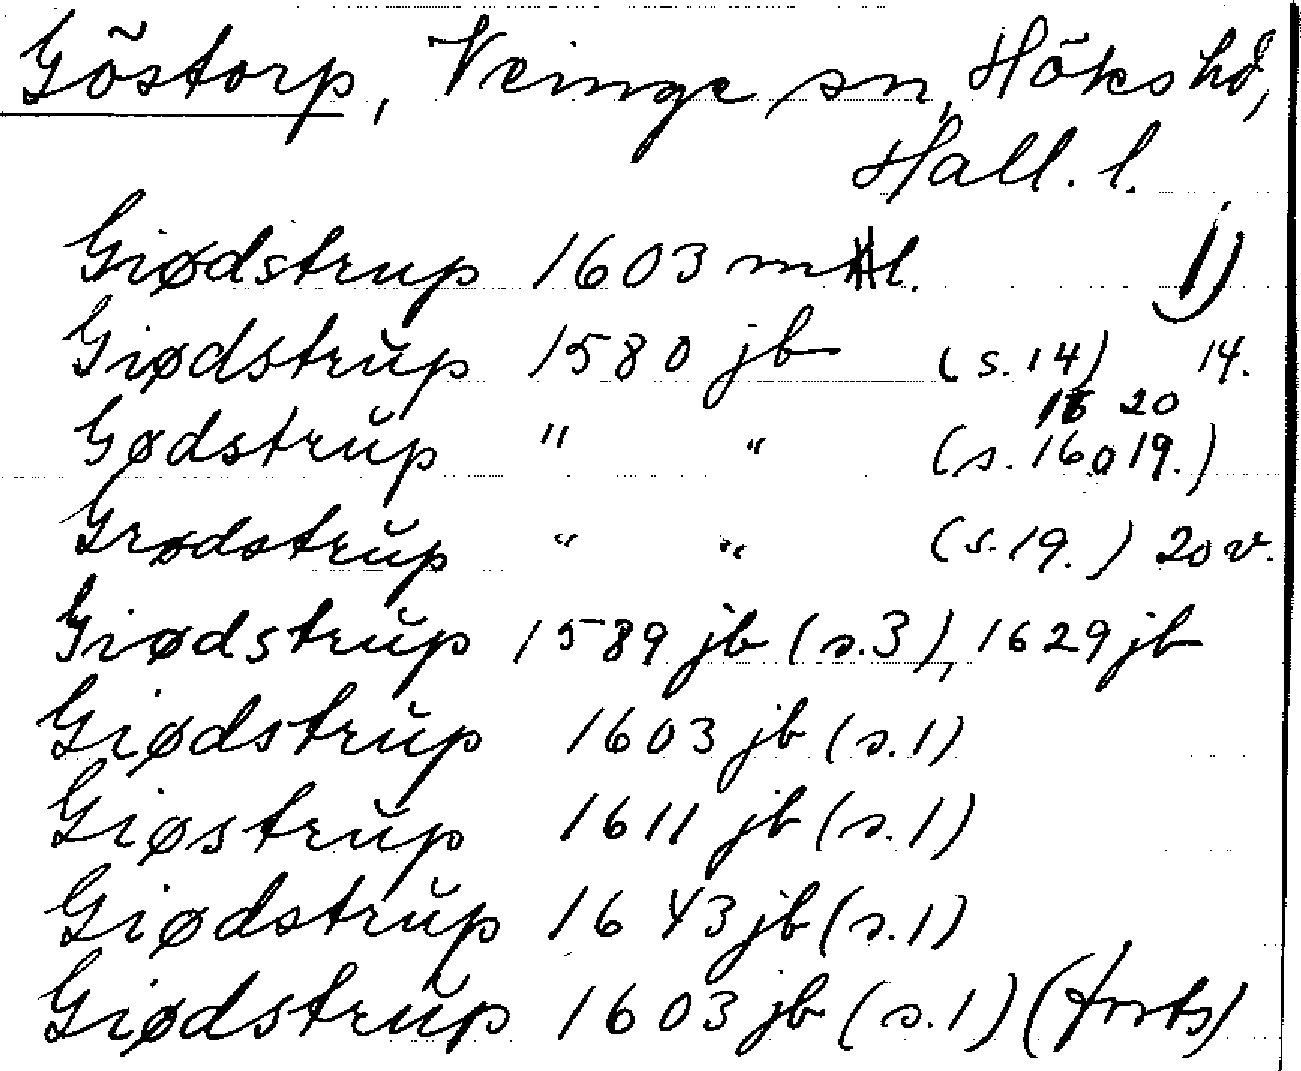 Göstorp, Veinge sn, Höks hd,
Hall. l.
Giødstrup 1603 mtl. 1)
Giødstrŭp 1580 jb (s. 14) 14.
16 20
Gødstrŭp " " (s. 16 o 19.)
Grødstrŭp " " (s. 19.) 20 v.
Giødstrŭp 1589 jb (s. 3), 1629 jb
Giødstrŭp 1603 jb (s. 1)
Giøstrŭp 1611 jb (s. 1)
Giødstrŭp 1643 jb (s. 1)
Giødstrŭp 1603 jb (s. 1) (forts)